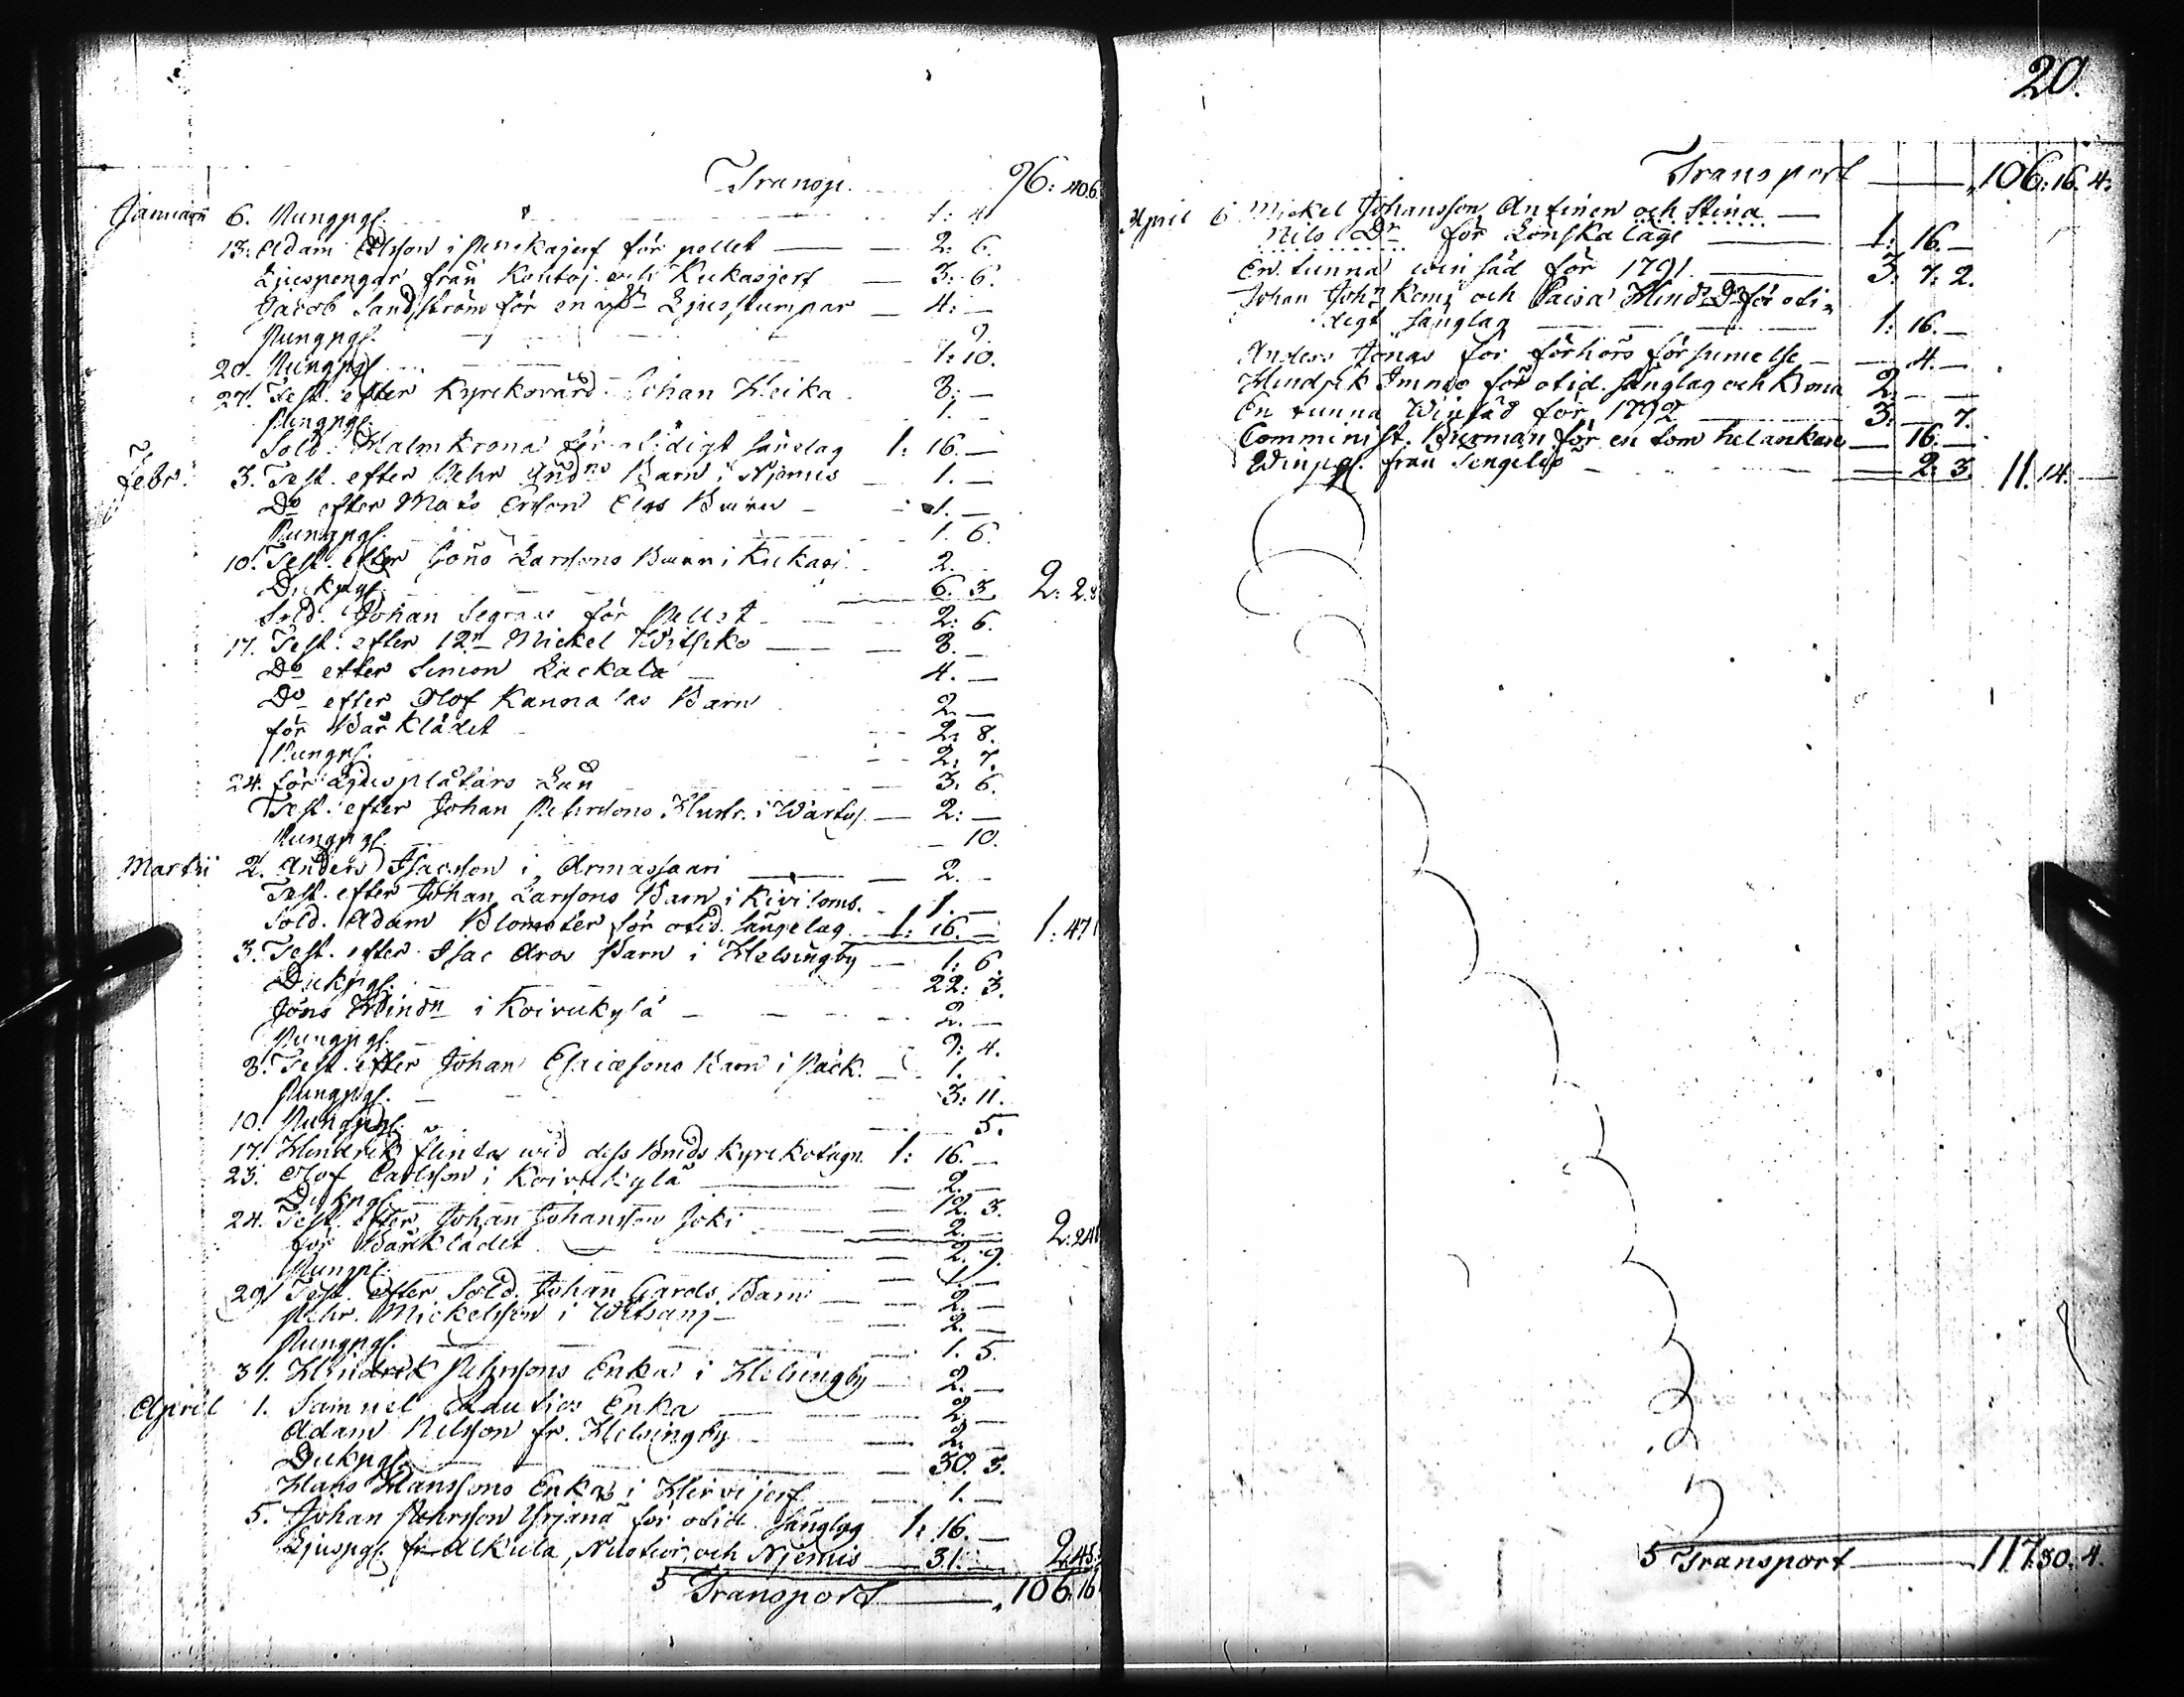 Transp. 96: 40. 6
Januarii 6. Pungpgr. 1: 4
13. Adam Olsson i Penikajerf för pellet 2: 6.
Ljuspengar från Kontoj. och Kukasjerf 3: 6.
Jacob Sandström för en Ljusstumpar 4: —
Pungpgr. 9.
20. Pungpgr. 1: 10.
27. Test. efter Kyrkovärd. Johan Heika 8: —
Pungpgr. 1. —
Sold. Malmkrona för otidigt sänglag 1: 16. —
Febr. 3. Test. efter Pehr And:ns Barn i Njemis 1. —
Do efter Mats Ersson Elgs Barn 1. —
Pungpgr. 1. 6.
10. Test. efter Jöns Larssons Barn i Kukasj. 2.
Dukpgr. 6. 3. 2: 2. 8
Sold. Johan Segra för Pellet 2: 6.
17. Test. efter 12n Mickel Witsiko 8. —
Do efter Simon Lackala 4. —
Do efter Olof Kannalas Barn 2. —
för Bårklädet 2: 8.
Pungpr. 2: 7.
24. för Ljusplåtars Lån 3. 6.
Test. efter Johan Pehrssons Hustr. i Wartoj. 2: —
Pungpgr. 10.
Martii 2. Anders Isacsson i Armassaari 2. —
Test. efter Johan Larssons Barn i Kiviloms. 1. —
Sold. Adam Blomster för otid. sängelag 1: 16. — 1: 47
3. Test. efter Isac Aros Barn i Helsingby 1: 6.
Dukpgr. 22: 3.
Jöns Hindn i Koivukylä 2. —
Pungpgr. 9: 4.
8. Test. efter Johan Esaiæsons Barn i Päck. 1.
Pungpgr. 3: 11.
10. Pungpgr. 5.
17. Hindrik flinta wid dess Bruds Kyrkotagn. 1: 16. —
23. Olof Carlsson i Koivukylä 2. —
Dukpgr. 12. 3.
24. Test. efter Johan Johansson Joki 2. — 2: 24
för Bårklädet 2. 9.
Pungpl. 1. —
29. Test. efter Sold. Johan Cards Barn 2. —
Pehr Mickelsson i Witsanj. 2. —
Pungpgr. 1. 5.
31. Hindrik Pehrssons Enka i Helsingby 2. —
April 1. Samuel Rautios Enka 2. —
Adam Nilsson fr. Helsingby 2. —
Dukpgr. 30. 3.
Hans Hanssons Enka i Hirvijerf 1. —
5. Johan Pehrsson Yrjänä för otid. sänglag 1: 16. —
Ljuspgr. fr Alkula, Nuotior. och Njemis 31. — 2. 45.
5 Transport 106. 16
20.
Transport 106: 16. 4:
April 6 Mickel Johansson Antinen och Stina
Nils Dr för Lönskaläge 1: 16. —
En tunna winsäd för 1791 3: 7: 2.
Johan Johs Kemi och Caisa Hindsdr för oti=
digt sänglag 1: 16. —
Anders Jonas för förhörs försumelse 4. —
Hindrik Immo för otid. sänglag och 2. —
En tunna Winsäd för 1792 3. — 7.
Comminist. Burman för en tom helankare 16. —
Winpgr. från Tengeliö 2. 3. 11. 14. —
5 Transport 117. 30. 4.